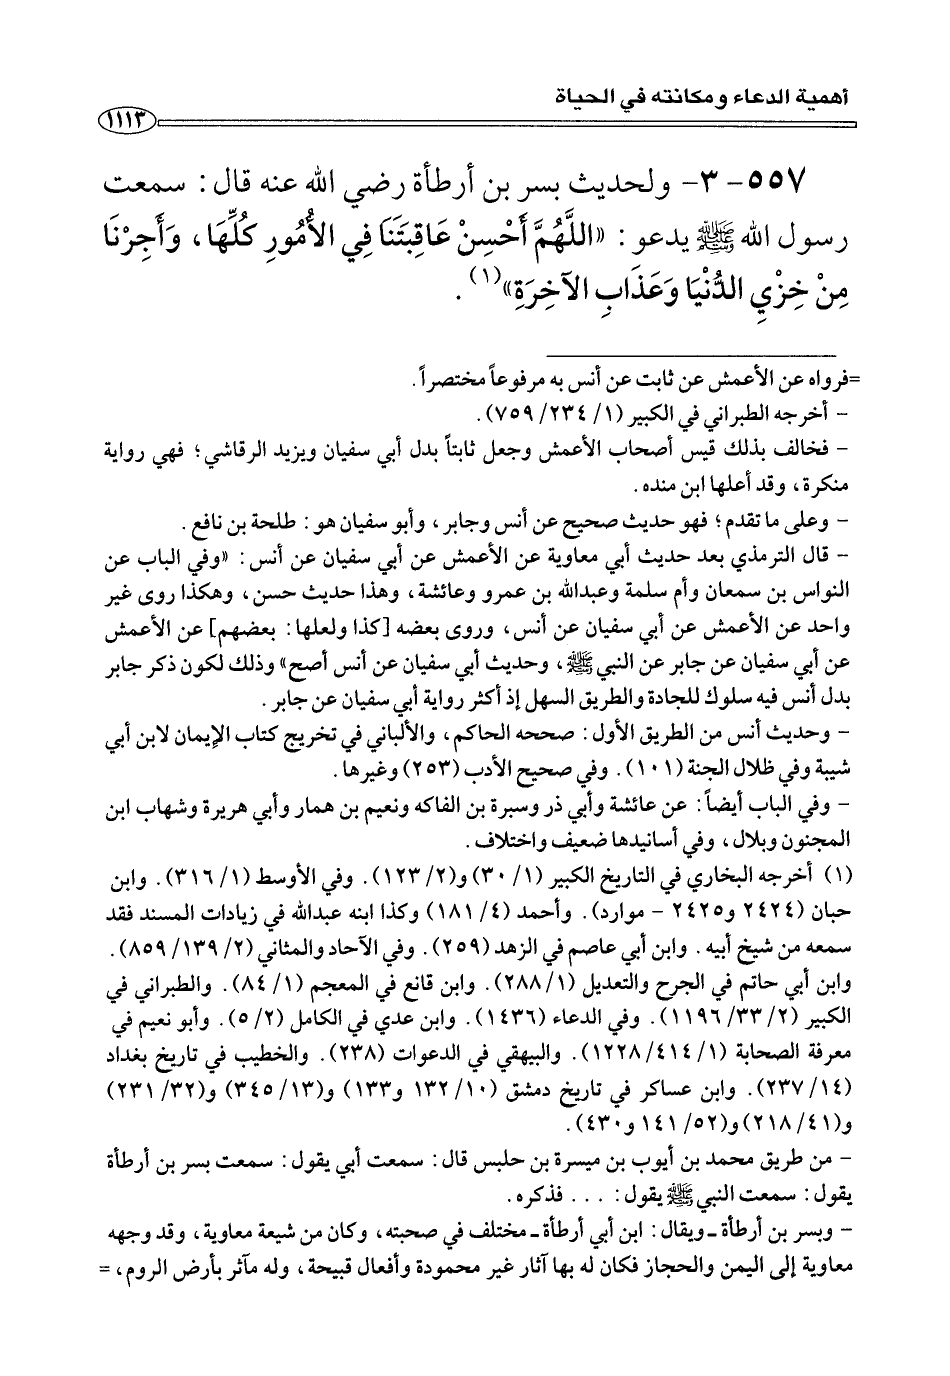 أهمية الدعاء ومكانته في الحياة
١١١٣
٥٥٧- ٣- ولحديث بسر بن أرطأة رضي الله عنه قال: سمعت
رسول الله ﷺ يدعو: «اللَّهُمَّ أَحْسِنْ عَاقِبَتَنَا فِي الأُمُورِ كُلِّهَا، وَأَجِرْنَا
مِنْ خِزْيِ الدُّنْيَا وَعَذَابِ الآخِرَةِ»(١).
=فرواه عن الأعمش عن ثابت عن أنس به مرفوعاً مختصراً.
- أخرجه الطبراني في الكبير (١/ ٢٣٤/ ٧٥٩).
- فخالف بذلك قيس أصحاب الأعمش وجعل ثابتاً بدل أبي سفيان ويزيد الرقاشي؛ فهي رواية
منكرة، وقد أعلها ابن منده.
- وعلى ما تقدم؛ فهو حديث صحيح عن أنس وجابر، وأبو سفيان هو: طلحة بن نافع.
- قال الترمذي بعد حديث أبي معاوية عن الأعمش عن أبي سفيان عن أنس: «وفي الباب عن
النواس بن سمعان وأم سلمة وعبدالله بن عمرو وعائشة، وهذا حديث حسن، وهكذا روى غير
واحد عن الأعمش عن أبي سفيان عن أنس، وروى بعضه [كذا ولعلها: بعضهم] عن الأعمش
عن أبي سفيان عن جابر عن النبي ﷺ، وحديث أبي سفيان عن أنس أصح» وذلك لكون ذكر جابر
بدل أنس فيه سلوك للجادة والطريق السهل إذ أكثر رواية أبي سفيان عن جابر.
- وحديث أنس من الطريق الأول: صححه الحاكم، والألباني في تخريج كتاب الإيمان لابن أبي
شيبة وفي ظلال الجنة (١٠١). وفي صحيح الأدب (٢٥٣) وغيرها.
- وفي الباب أيضاً: عن عائشة وأبي ذر وسبرة بن الفاكه ونعيم بن همار وأبي هريرة وشهاب ابن
المجنون وبلال، وفي أسانيدها ضعيف واختلاف.
(١) أخرجه البخاري في التاريخ الكبير (١/ ٣٠) و(٢/ ١٢٣). وفي الأوسط (١/ ٣١٦). وابن
حبان (٢٤٢٤ و٢٤٢٥ - موارد). وأحمد (٤/ ١٨١) وكذا ابنه عبدالله في زيادات المسند فقد
سمعه من شيخ أبيه. وابن أبي عاصم في الزهد (٢٥٩). وفي الآحاد والمثاني (٢/ ١٣٩/ ٨٥٩).
وابن أبي حاتم في الجرح والتعديل (١/ ٢٨٨). وابن قانع في المعجم (١/ ٨٤). والطبراني في
الكبير (٢/ ٣٣/ ١١٩٦). وفي الدعاء (١٤٣٦). وابن عدي في الكامل (٢/ ٥). وأبو نعيم في
معرفة الصحابة (١/ ٤١٤/ ١٢٢٨). والبيهقي في الدعوات (٢٣٨). والخطيب في تاريخ بغداد
(١٤/ ٢٣٧). وابن عساكر في تاريخ دمشق (١٠/ ١٣٢ و١٣٣) و(١٣/ ٣٤٥) و(٣٢/ ٢٣١)
و(٤١/ ٢١٨) و(٥٢/ ١٤١ و٤٣٠).
- من طريق محمد بن أيوب بن ميسرة بن حلبس قال: سمعت أبي يقول: سمعت بسر بن أرطأة
يقول: سمعت النبي ﷺ يقول: ... فذكره.
- وبسر بن أرطأة ـ ويقال: ابن أبي أرطأة ـ مختلف في صحبته، وكان من شيعة معاوية، وقد وجهه
معاوية إلى اليمن والحجاز فكان له بها آثار غير محمودة وأفعال قبيحة، وله مآثر بأرض الروم، =